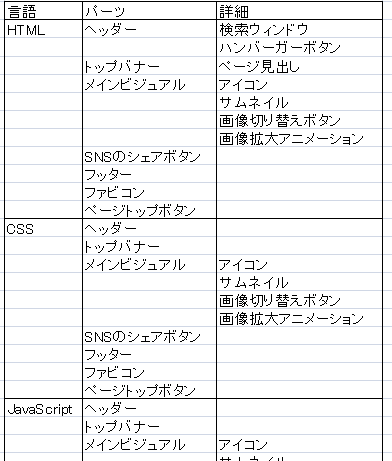 言語 パーツ 詳細
HTML ヘッダー 検索ウィンドウ
ハンバーガーボタン
トップバナー ページ見出し
メインビジュアル アイコン
サムネイル
画像切り替えボタン
画像拡大アニメーション
SNSのシェアボタン
フッター
ファビコン
ページトップボタン
CSS ヘッダー
トップバナー
メインビジュアル アイコン
サムネイル
画像切り替えボタン
画像拡大アニメーション
SNSのシェアボタン
フッター
ファビコン
ページトップボタン
JavaScript ヘッダー
トップバナー
メインビジュアル アイコン